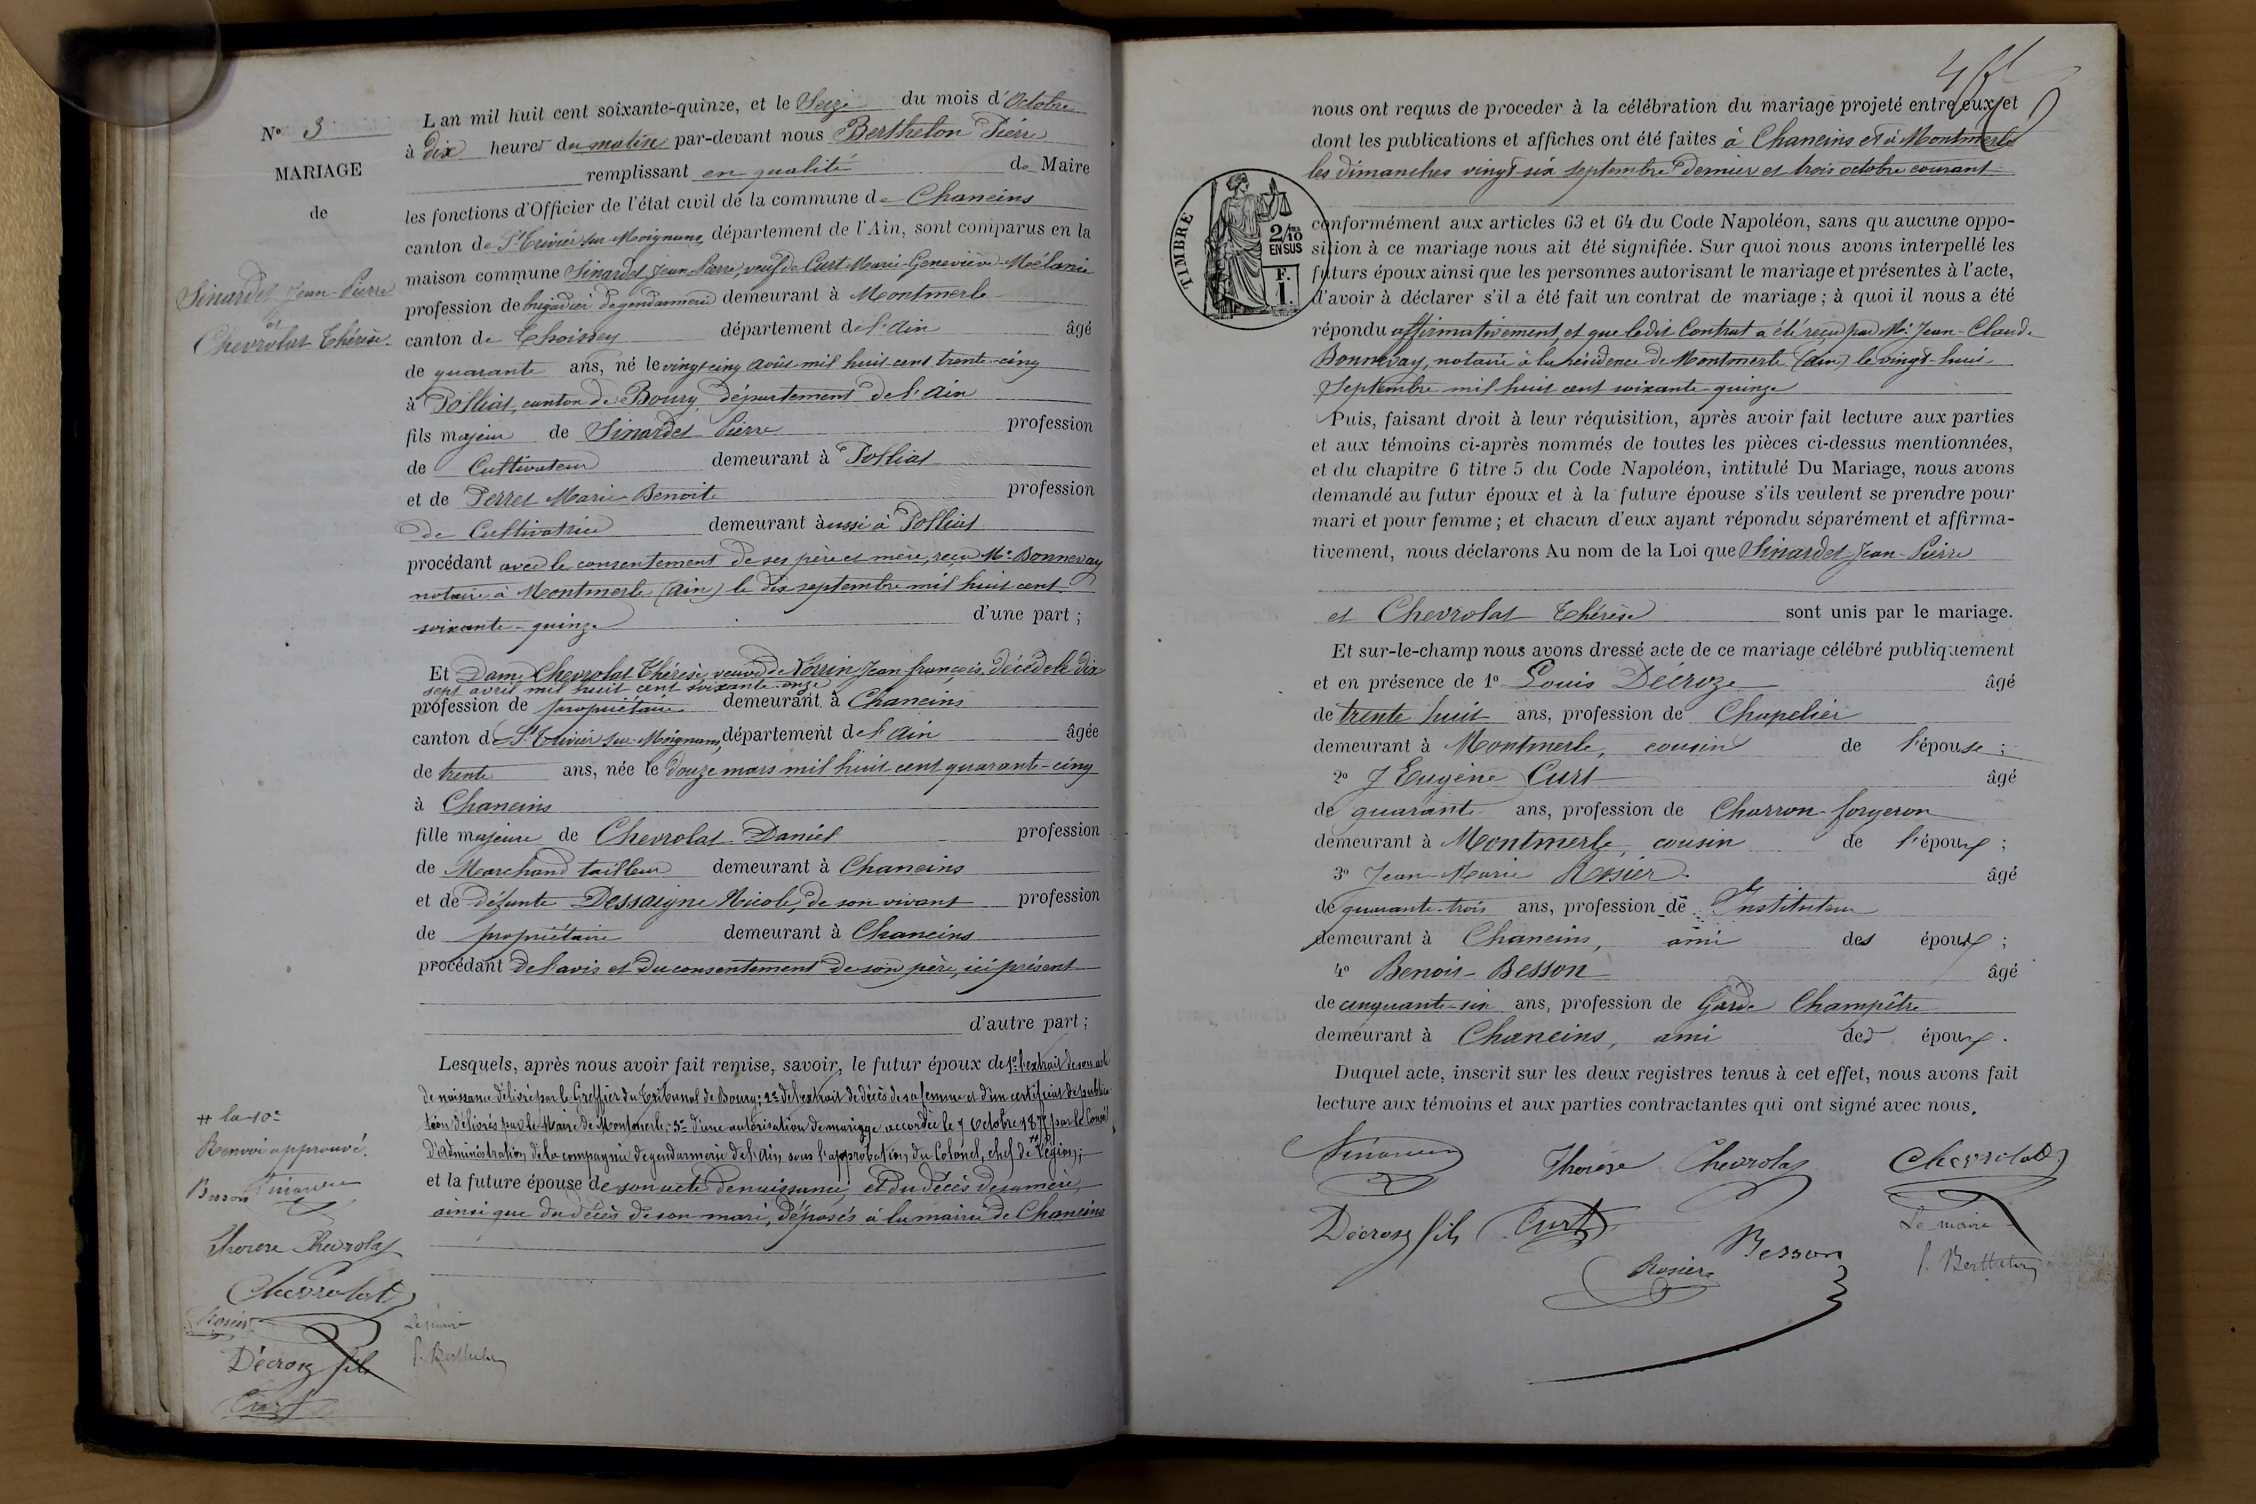 N° 3
MARIAGE
de
Sinardet Jean-Pierre
et
Chevrolat Thérèse.
L'an mil huit cent soixante-quinze, et le Seize du mois d'Octobre
à dix heures du matin par-devant nous Berthelon Pierre
remplissant en qualité de Maire
les fonctions d'Officier de l'état civil de la commune de Chaneins
canton de St Trivier sur Moignans, département de l'Ain, sont comparus en la
maison commune Sinardet Jean Pierre, veuf de Curt Marie-Geneviève-Mélanie
profession de brigadier de gendarmerie demeurant à Montmerle
canton de Thoissey département de l'Ain âgé
de quarante ans, né le vingt cinq Août mil huit cent trente-cinq
à Polliat, canton de Bourg, département de l'Ain
fils majeur de Sinardet Pierre profession
de Cultivateur demeurant à Polliat
et de Perret Marie Benoite profession
de Cultivatrice demeurant aussi à Polliat
procédant avec le consentement de ses père et mère, reçu Me Bonnevay
notaire à Montmerle (Ain) le dix septembre mil huit cent
soixante-quinze d'une part ;
Et Dame Chevrolat Thérèse, veuve de Jean françois, décédé le dix
sept avril mil huit cent soixante-onze
profession de propriétaire demeurant à Chaneins
canton de St Trivier sur Moignans, département de l'Ain âgée
de trente ans, née le douze mars mil huit cent quarante-cinq
à Chaneins
fille majeure de Chevrolat Daniel profession
de Marchand tailleur demeurant à Chaneins
et de défunte Dessaigne Nicole, de son vivant profession
de propriétaire demeurant à Chaneins
procédant de l'avis et du consentement de son père, ici présent
d'autre part ;
Lesquels, après nous avoir fait remise, savoir, le futur époux de 1° l'extrait de son acte
de naissance délivré par le Greffier du Tribunal de Bourg; 2° de l'extrait de décès de sa femme et d'un certificat de publica
tion délivrés par le Maire de Montmerle; 3° d'une autorisation de mariage accordée le 7 Octobre 1875 par le Conseil
d'Administration de la compagnie de gendarmerie de l'Ain sous l'approbation du Colonel, chef de Légion;
et la future épouse de son acte de naissance, et du décès de sa mère,
ainsi que du décès de son mari, déposés à la mairie de Chaneins
# la 10e
Renvoi approuvé.
Besson Sinardet
Therese Chevrolat
Chevrolat
Rosier
Le maire
P. Berthelon
Décroze fils
Curt
nous ont requis de proceder à la célébration du mariage projeté entre eux et
dont les publications et affiches ont été faites à Chaneins et à Montmerle
les dimanches vingt-six septembre dernier et trois octobre courant
TIMBRE
2/10 EN SUS
F. 1.
conformément aux articles 63 et 64 du Code Napoléon, sans qu'aucune oppo-
sition à ce mariage nous ait été signifiée. Sur quoi nous avons interpellé les
futurs époux ainsi que les personnes autorisant le mariage et présentes à l'acte,
d'avoir à déclarer s'il a été fait un contrat de mariage ; à quoi il nous a été
répondu affirmativement, et que ledit Contrat a été reçu par Me Jean-Claude
Bonnevay, notaire à la résidence de Montmerle (Ain) le vingt-huit
Septembre mil huit cent soixante-quinze
Puis, faisant droit à leur réquisition, après avoir fait lecture aux parties
et aux témoins ci-après nommés de toutes les pièces ci-dessus mentionnées,
et du chapitre 6 titre 5 du Code Napoléon, intitulé Du Mariage, nous avons
demandé au futur époux et à la future épouse s'ils veulent se prendre pour
mari et pour femme ; et chacun d'eux ayant répondu séparément et affirma-
tivement, nous déclarons Au nom de la Loi que Sinardet Jean-Pierre
et Chevrolat Thérèse sont unis par le mariage.
Et sur-le-champ nous avons dressé acte de ce mariage célébré publiquement
et en présence de 1° Louis Décroze âgé
de trente huit ans, profession de Chapelier
demeurant à Montmerle, cousin de l'épouse ;
2° J Eugène Curt âgé
de quarante ans, profession de Charron-forgeron
demeurant à Montmerle, cousin de l'époux ;
3° Jean-Marie Rosier âgé
de quarante-trois ans, profession de Instituteur
demeurant à Chaneins, ami des époux ;
4° Benoit-Besson âgé
de cinquante-six ans, profession de Garde Champêtre
demeurant à Chaneins, ami des époux.
Duquel acte, inscrit sur les deux registres tenus à cet effet, nous avons fait
lecture aux témoins et aux parties contractantes qui ont signé avec nous.
Sinardet Therese Chevrolat Chevrolat
Décroze fils Curt Besson Le maire
Rosier P. Berthelon